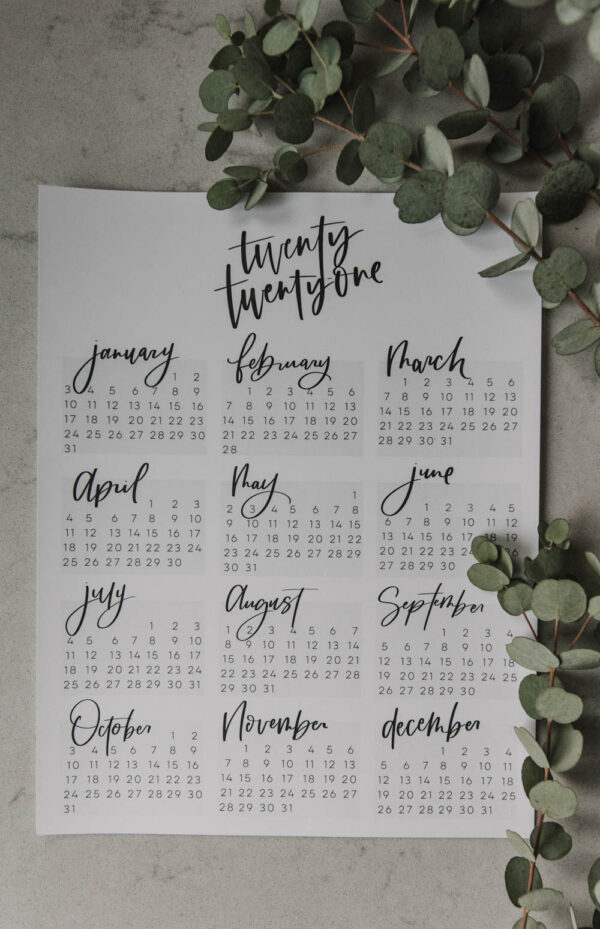 twenty
twenty-one
january
1 2
3 4 5 6 7 8 9
10 11 12 13 14 15 16
17 18 19 20 21 22 23
24 25 26 27 28 29 30
31
february
1 2 3 4 5 6
7 8 9 10 11 12 13
14 15 16 17 18 19 20
21 22 23 24 25 26 27
28
March
1 2 3 4 5 6
7 8 9 10 11 12 13
14 15 16 17 18 19 20
21 22 23 24 25 26 27
28 29 30 31
April
1 2 3
4 5 6 7 8 9 10
11 12 13 14 15 16 17
18 19 20 21 22 23 24
25 26 27 28 29 30
May
1
2 3 4 5 6 7 8
9 10 11 12 13 14 15
16 17 18 19 20 21 22
23 24 25 26 27 28 29
30 31
june
1 2 3 4 5
6 7 8 9 10 11 12
13 14 15 16 17 18 19
20 21 22 23 24 26
27 28 29 30
july
1 2 3
4 5 6 7 8 9 10
11 12 13 14 15 16 17
18 19 20 21 22 23 24
25 26 27 28 29 30 31
August
1 2 3 4 5 6 7
8 9 10 11 12 13 14
15 16 17 18 19 20 21
22 23 24 25 26 27 28
29 30 31
September
1 2 3 4
5 6 7 8 9 10 11
12 13 14 15 16 17 18
19 20 21 22 23 24 25
26 27 28 29 30
October
1 2
3 4 5 6 7 8 9
10 11 12 13 14 15 16
17 18 19 20 21 22 23
24 25 26 27 28 29 30
31
November
1 2 3 4 5 6
7 8 9 10 11 12 13
14 15 16 17 18 19 20
21 22 23 24 25 26 27
28 29 30 31
december
1 2 3 4
5 6 7 8 9 10 11
12 13 14 15 16 17 18
19 20 21 22 23 24 25
26 27 28 29 30 31